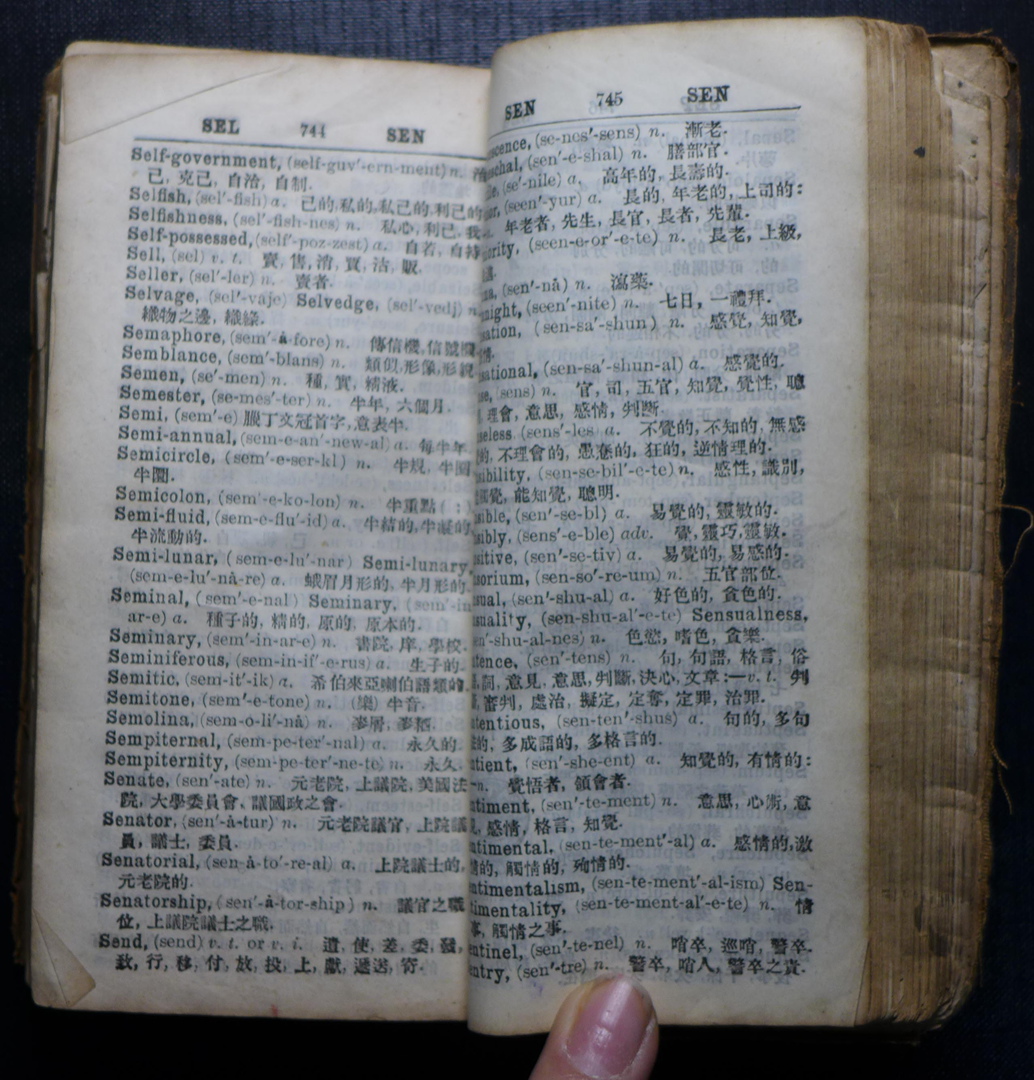 SEL 744 SEN
Self-government, (self-guv′-ern-ment) n. 治
己, 克己, 自治, 自制.
Selfish, (sel′-fish) a. 己的, 私的, 私己的, 利己的
Selfishness, (sel′-fish-nes) n. 私心, 利己, 我
Self-possessed, (self′-poz-zest) a. 自若, 自持
Sell, (sel) v. t. 賣, 售, 消, 賈, 沽, 販.
Seller, (sel′-ler) n. 賣者.
Selvage, (sel′-vaje) Selvedge, (sel′-vedj) n.
織物之邊, 織緣.
Semaphore, (sem′-â-fore) n. 傳信機, 信號
Semblance, (sem′-blans) n. 類似, 形像, 形貌
Semen, (se′-men) n. 種, 實, 精液.
Semester, (se-mes′-ter) n. 半年, 六個月.
Semi, (sem′-e) 臘丁文冠首字, 意表半.
Semi-annual, (sem-e-an′-new-al) a. 每半年
Semicircle, (sem′-e-ser-kl) n. 半規, 半圓
半圜.
Semicolon, (sem′-e-ko-lon) n. 半重點 ( ; )
Semi-fluid, (sem-e-flu′-id) a. 半結的, 半凝的
半流動的.
Semi-lunar, (sem-e-lu′-nar) Semi-lunary,
(sem-e-lu′-nâ-re) a. 蛾眉月形的, 半月形的
Seminal, (sem′-e-nal) Seminary, (sem′-in
ar-e) a. 種子的, 精的, 原的, 原本的.
Seminary, (sem′-in-ar-e) n. 書院, 庠, 學校.
Seminiferous, (sem-in-if′-e-rus) a. 生子的.
Semitic, (sem-it′-ik) a. 希伯來亞喇伯語類的.
Semitone, (sem′-e-tone) n. (樂) 半音.
Semolina, (sem-o-li′-nâ) n. 麥屑, 麥粞.
Sempiternal, (sem-pe-ter′-nal) a. 永久的.
Sempiternity, (sem-pe-ter′-ne-te) n. 永久.
Senate, (sen′-ate) n. 元老院, 上議院, 美國法
院, 大學委員會, 議國政之會.
Senator, (sen′-â-tur) n. 元老院議官, 上院議
員, 議士, 委員.
Senatorial, (sen-â-to′-re-al) a. 上院議士的,
元老院的.
Senatorship, (sen′-â-tor-ship) n. 議官之職
位, 上議院議士之職.
Send, (send) v. t. or v. i. 遣, 使, 差, 委, 發,
致, 行, 移, 付, 放, 投, 上, 獻, 遞送, 寄.
SEN 745 SEN
scence, (se-nes′-sens) n. 漸老.
schal, (sen′-e-shal) n. 膳部官.
(se′-nile) a. 高年的, 長壽的.
(seen′-yur) a. 長的, 年老的, 上司的:
年老者, 先生, 長官, 長者, 先輩.
ority, (seen-e-or′-e-te) n. 長老, 上級,
(sen′-nâ) n. 瀉藥.
night, (seen′-nite) n. 七日, 一禮拜.
sation, (sen-sa′-shun) n. 感覺, 知覺,
sational, (sen-sa′-shun-al) a. 感覺的.
(sens) n. 官, 司, 五官, 知覺, 覺性, 聰
理會, 意思, 感情, 判斷.
seless (sens′-les) a. 不覺的, 不知的, 無感
的, 不理會的, 愚憃的, 狂的, 逆情理的.
sibility, (sen-se-bil′-e-te) n. 感性, 識別,
覺, 能知覺, 聰明.
sible, (sen′-se-bl) a. 易覺的, 靈敏的.
sibly, (sens′-e-ble) adv. 覺, 靈巧, 靈敏.
sitive, (sen′-se-tiv) a. 易覺的, 易感的.
sorium, (sen-so′-re-um) n. 五官部位.
sual, (sen′-shu-al) a. 好色的, 貪色的.
suality, (sen-shu-al′-e-te) Sensualness,
en′-shu-al-nes) n. 色慾, 嗜色, 貪樂.
tence, (sen′-tens) n. 句, 句語, 格言, 俗
詞, 意見, 意思, 判斷, 決心, 文章:—v. t. 判
審判, 處治, 擬定, 定奪, 定罪, 治罪.
tentious, (sen-ten′-shus) a. 句的, 多句
的, 多成語的, 多格言的.
tient, (sen′-she-ent) a. 知覺的, 有情的:
—n. 覺悟者, 領會者.
timent, (sen′-te-ment) n. 意思, 心術, 意
見, 感情, 格言, 知覺.
timental, (sen-te-ment′-al) a. 感情的, 激
情的, 觸情的, 殉情的.
timentalism, (sen-te-ment′-al-ism) Sen-
timentality, (sen-te-ment-al′-e-te) n. 情
事, 觸情之事.
ntinel, (sen′-te-nel) n. 哨卒, 巡哨, 警卒.
ntry, (sen′-tre) n. 警卒, 哨人, 警卒之責.